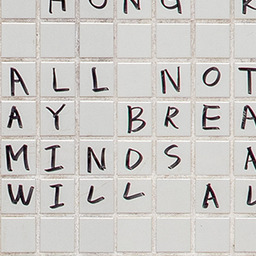 HONG R
ALL NOT
AY BREA
MINDS A
WILL AL